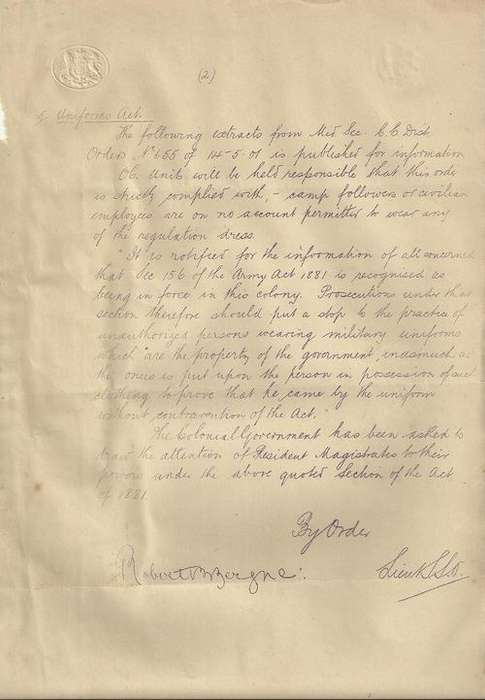 (2)
Uniforms Act.
The following extracts from Med Sec. C.C. Dist
Orders No 655 of 14-5-01 is published for information
OC. Units will be held responsible that this order
is strictly complied with, - camp followers or civilian
employees are on no account permitted to wear any
of the regulation dress.
"It is notified for the information of all concerned
that Sec 156 of the Army Act 1881 is recognised as
being in force in this colony. Prosecutions under that
section therefore should put a stop to the practice of
unauthorised persons wearing military uniforms
which "are the property of the government, inasmuch as
the onus is put upon the person in possession of such
clothing to prove that he came by the uniform
without contravention of the Act."
The Colonial Government has been asked to
draw the attention of Resident Magistrates to their
powers under the above quoted Section of the Act
of 1881.
By Order
Robert Bergne.
Lieut